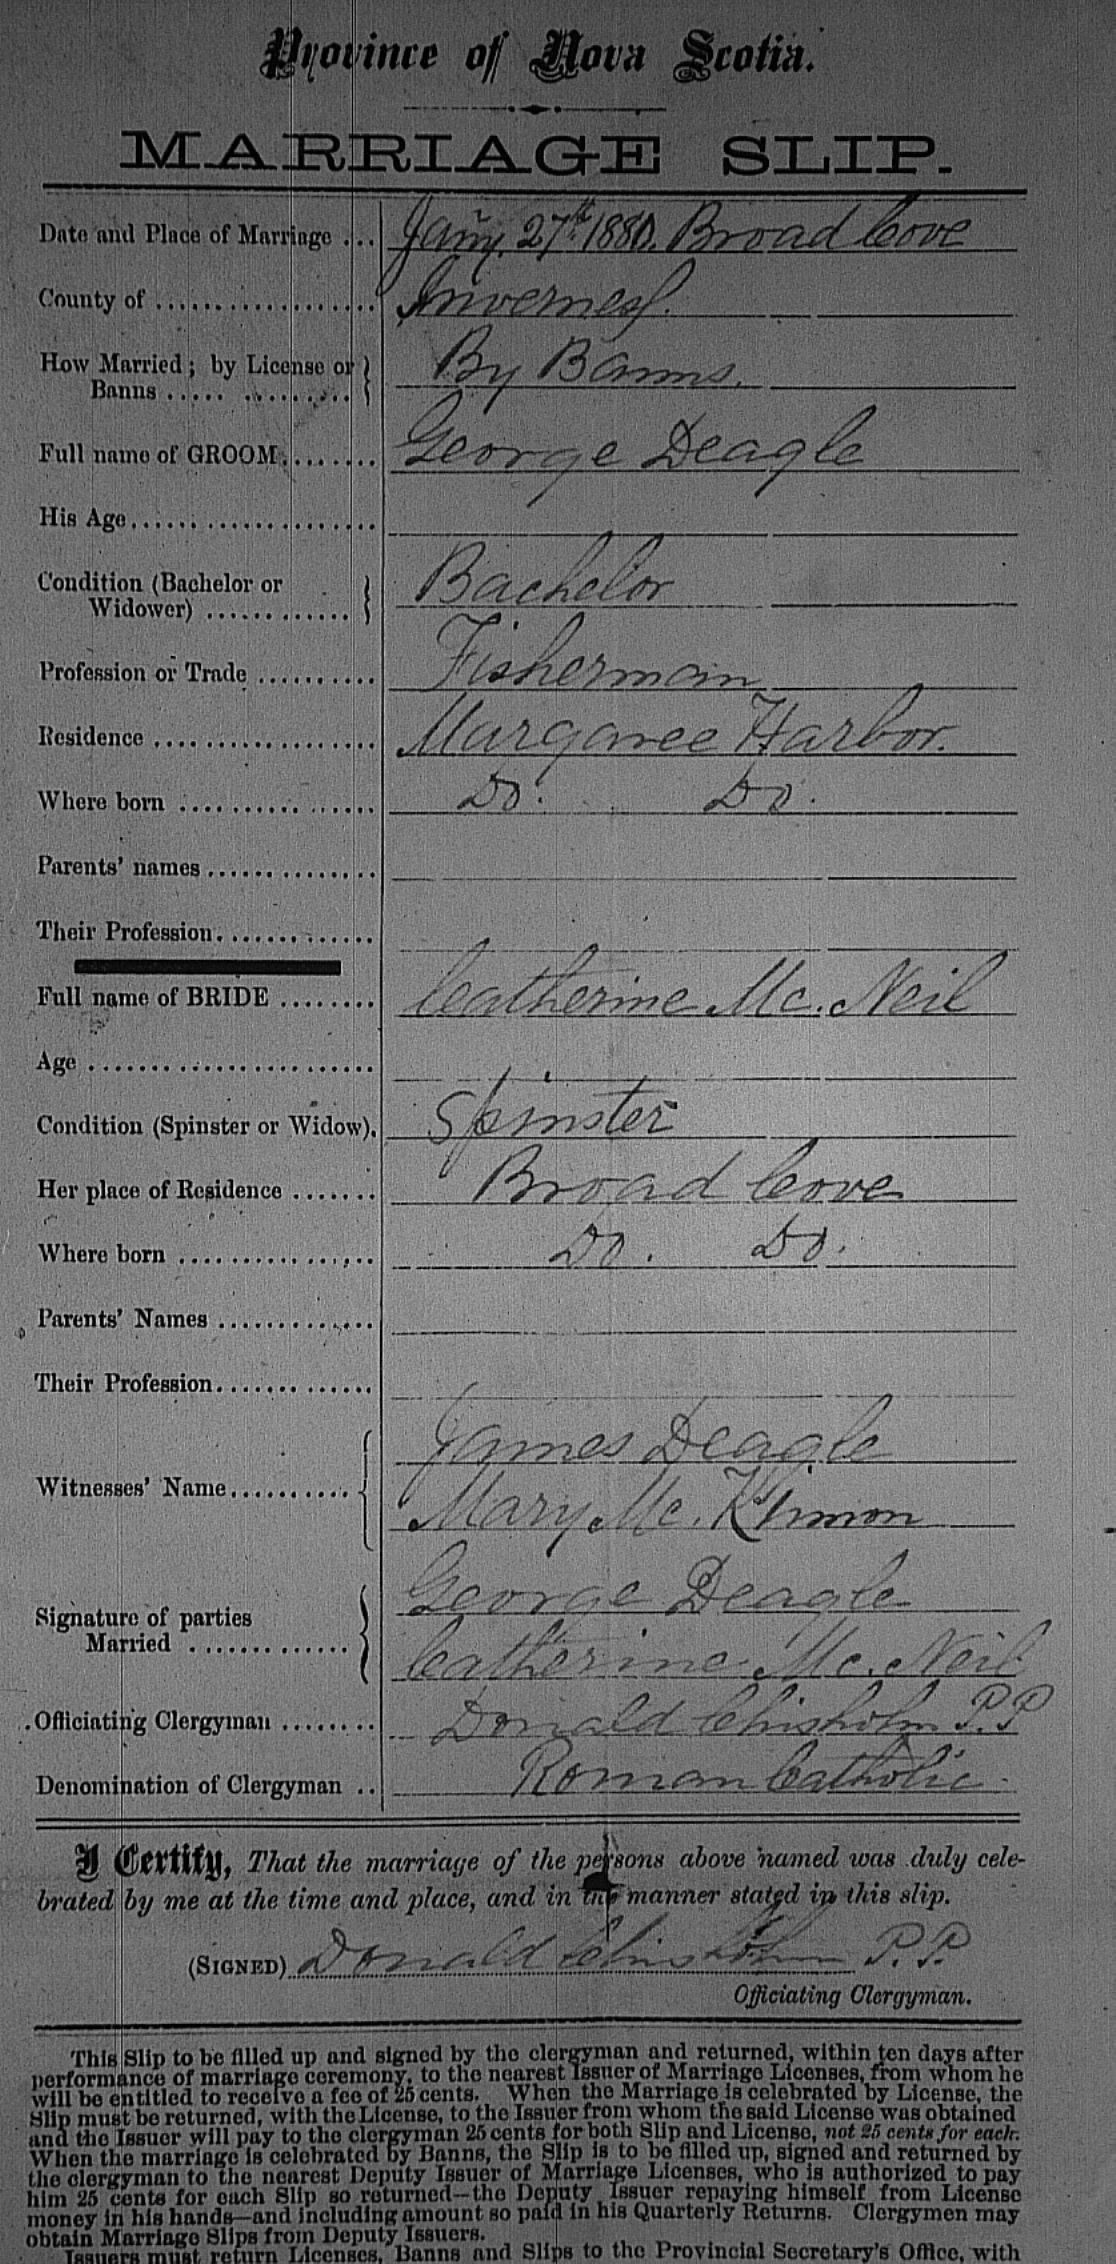 Province of Nova Scotia.
MARRIAGE SLIP.
Date and Place of Marriage ... Jany. 27th 1880. Broad Cove
County of .................. Inverness.
How Married; by License or
Banns ..... ......... } By Banns.
Full name of GROOM......... George Deagle
His Age.......................
Condition (Bachelor or
Widower) ............ } Bachelor
Profession or Trade .......... Fisherman
Residence .................... Margaree Harbor.
Where born .................. Do. Do.
Parents' names ...............
Their Profession..............
Full name of BRIDE ........ Catherine Mc. Neil
Age .........................
Condition (Spinster or Widow). Spinster
Her place of Residence ....... Broad Cove
Where born .................. Do. Do.
Parents' Names ..............
Their Profession..............
James Deagle
Witnesses' Name.......... {
Mary Mc. Kinnon
George Deagle
Signature of parties
Married ............. }
Catherine Mc. Neil
Officiating Clergyman ........ Donald Chisholm P.P
Denomination of Clergyman .. Roman Catholic.
I Certify, That the marriage of the persons above named was duly cele-
brated by me at the time and place, and in the manner stated in this slip.
(SIGNED) Donald Chisholm P.P.
Officiating Clergyman.
This Slip to be filled up and signed by the clergyman and returned, within ten days after
performance of marriage ceremony, to the nearest Issuer of Marriage Licenses, from whom he
will be entitled to receive a fee of 25 cents. When the Marriage is celebrated by License, the
Slip must be returned, with the License, to the Issuer from whom the said License was obtained
and the Issuer will pay to the clergyman 25 cents for both Slip and License, not 25 cents for each.
When the marriage is celebrated by Banns, the Slip is to be filled up, signed and returned by
the clergyman to the nearest Deputy Issuer of Marriage Licenses, who is authorized to pay
him 25 cents for each Slip so returned—the Deputy Issuer repaying himself from License
money in his hands—and including amount so paid in his Quarterly Returns. Clergymen may
obtain Marriage Slips from Deputy Issuers.
Issuers must return Licenses, Banns and Slips to the Provincial Secretary's Office, with